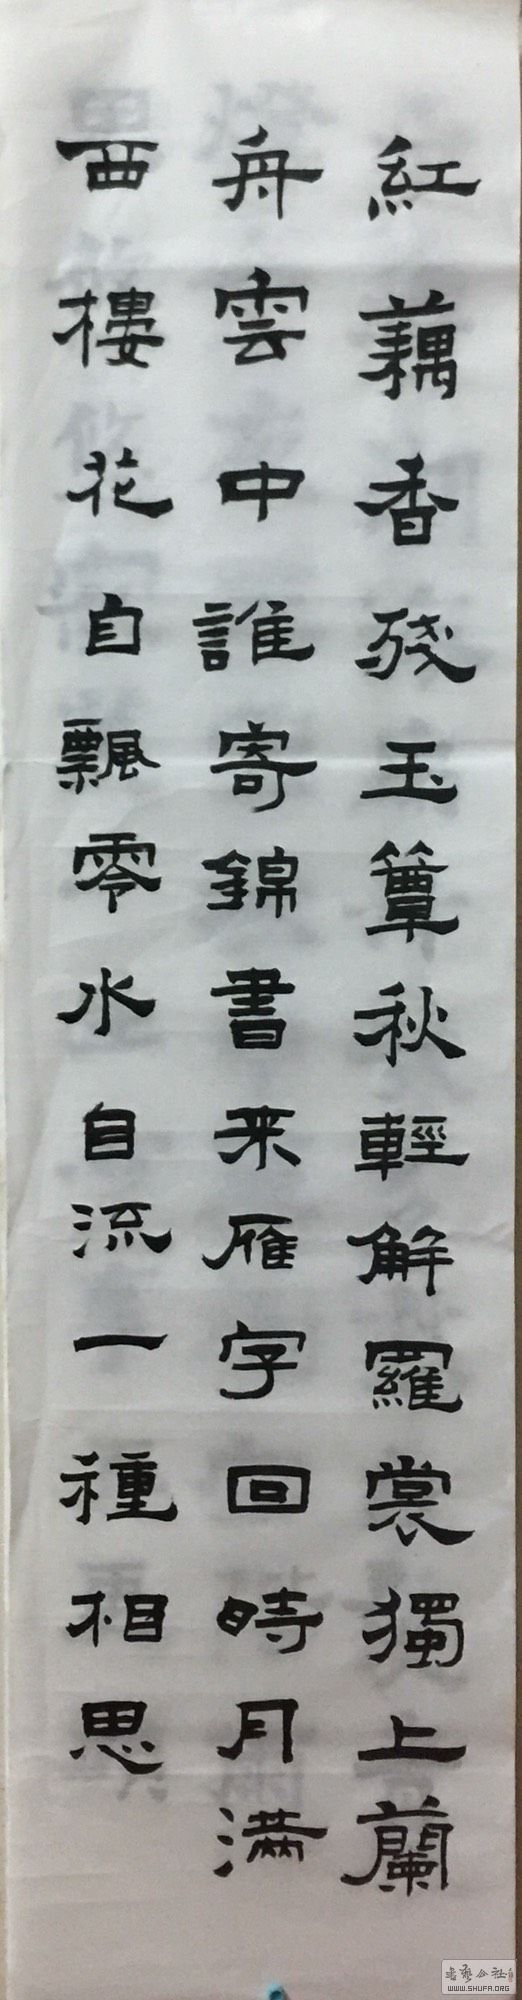 紅藕香殘玉簟秋輕解羅裳獨上蘭
舟雲中誰寄錦書来雁字回時月满
西樓花自飄零水自流一種相思
書藝公社
WWW.SHUFA.ORG